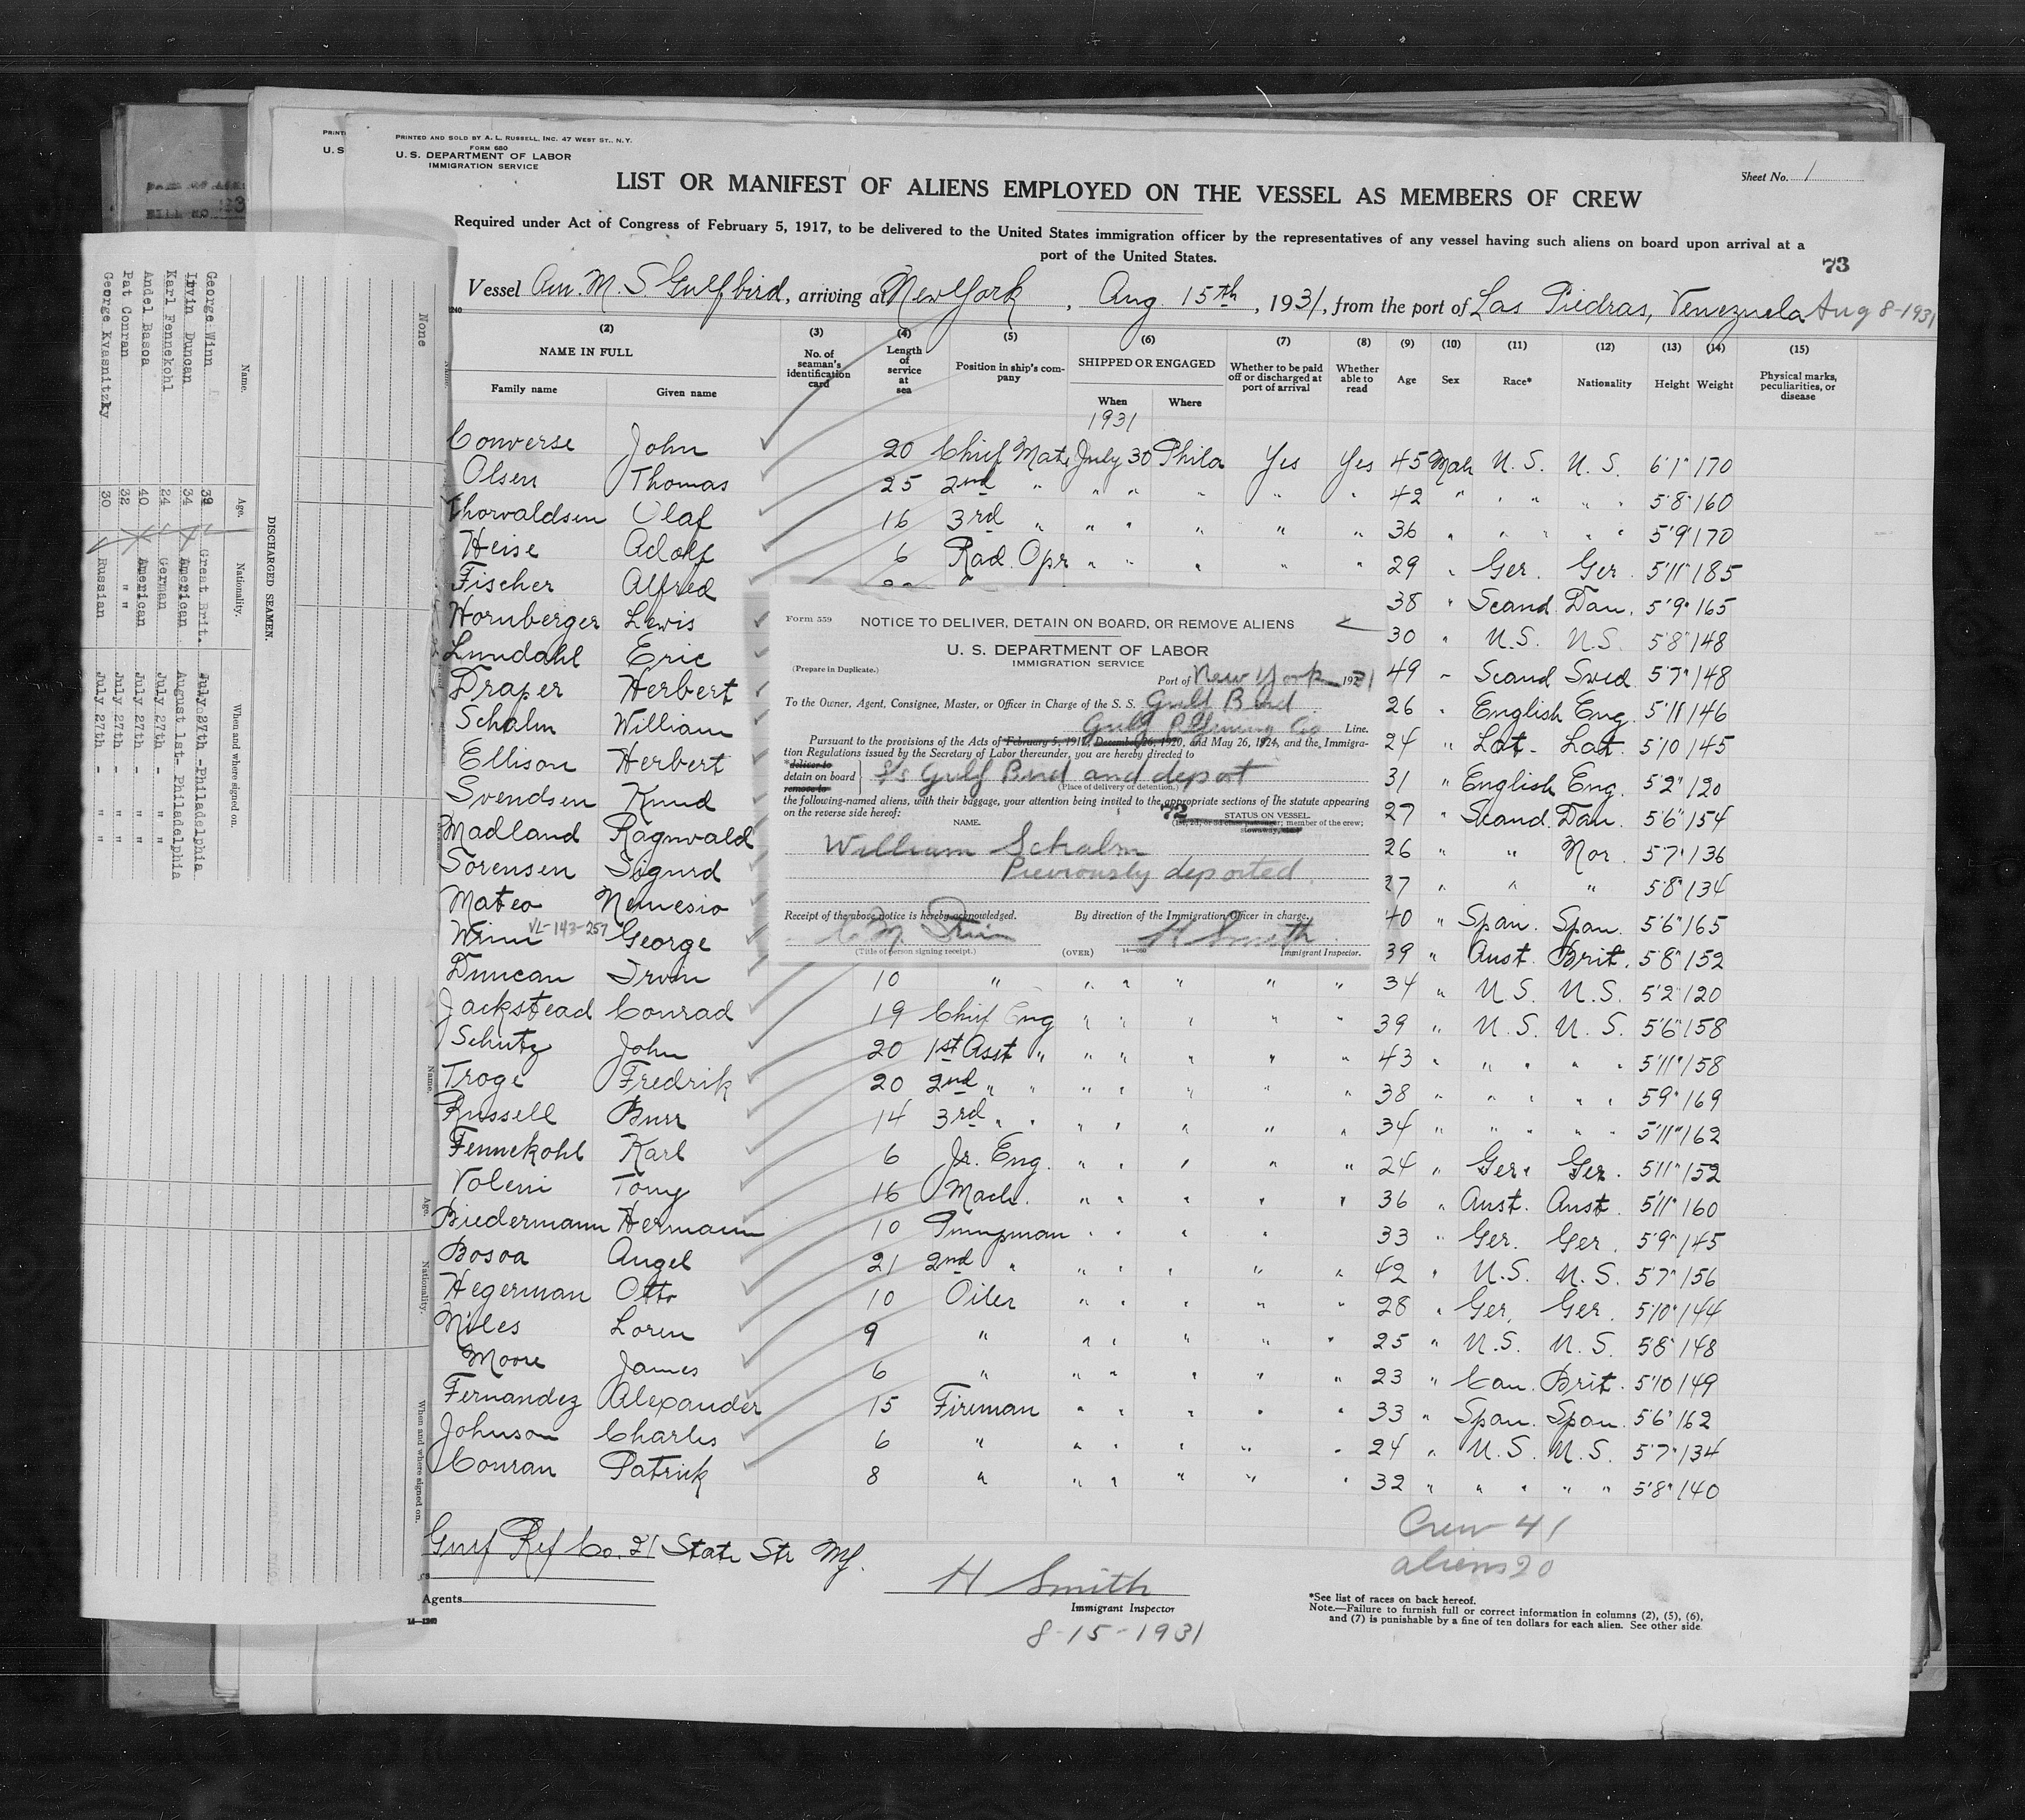 PRINTED AND SOLD BY A. L. RUSSELL, INC. 47 WEST ST., N.Y.
FORM 680
U. S. DEPARTMENT OF LABOR
IMMIGRATION SERVICE
Sheet No. 1
LIST OR MANIFEST OF ALIENS EMPLOYED ON THE VESSEL AS MEMBERS OF CREW
Required under Act of Congress of February 5, 1917, to be delivered to the United States immigration officer by the representatives of any vessel having such aliens on board upon arrival at a
port of the United States.
73
Vessel Am. M. S. Gulfbird, arriving at New York, Aug. 15th, 1931, from the port of Las Piedras, Venezuela Aug 8-1931
(2) (3) (4) (5) (6) (7) (8) (9) (10) (11) (12) (13) (14) (15)
NAME IN FULL
Family name Given name
No. of seaman's identification card
Length of service at sea
Position in ship's company
SHIPPED OR ENGAGED
When Where
Whether to be paid off or discharged at port of arrival
Whether able to read
Age Sex Race* Nationality Height Weight
Physical marks, peculiarities, or disease
1931
Converse John 20 Chief Mate July 30 Phila Yes Yes 45 Male U.S. U.S. 6'1" 170
Olsen Thomas 25 2nd " " " " " " 42 " " " " " 5'8" 160
Thorvaldsen Olaf 16 3rd " " " " " " 36 " " " " " 5'9" 170
Heise Adolf 6 Rad. Opr " " " " " 29 " Ger. Ger. 5'11" 185
Fischer Alfred 38 " Scand. Dan. 5'9" 165
Hornberger Lewis 30 " U.S. U.S. 5'8" 148
Lundahl Eric 49 " Scand Swed 5'7" 148
Draper Herbert 26 " English Eng. 5'11" 146
Schalm William 24 " Lat. Lat. 5'10 145
Ellison Herbert 31 " English Eng. 5'2" 120
Svendsen Knud 27 " Scand. Dan. 5'6" 154
Madland Ragnvald 26 " " Nor. 5'7" 136
Sorensen Sigurd 27 " " " 5'8" 134
Mateo Nemesio 40 " Span. Span. 5'6" 165
Winn VL-143-257 George 39 " Aust. Brit. 5'8" 152
Duncan Irvin 10 " " " " " " 34 " U.S. U.S. 5'2" 120
Jackstead Conrad 19 Chief Eng " " " " " 39 " U.S. U.S. 5'6" 158
Schutz John 20 1st Asst " " " " " " 43 " " " " " 5'11" 158
Troge Fredrik 20 2nd " " " " " " " 38 " " " " " 5'9" 169
Russell Burr 14 3rd " " " " " " " 34 " " " " " 5'11" 162
Fennekohl Karl 6 Jr. Eng. " " " " " 24 " Ger. Ger. 5'11" 152
Voleni Tony 16 Mach. " " " " " 36 " Aust. Aust. 5'11" 160
Biedermann Hermann 10 Pumpman " " " " 33 " Ger. Ger. 5'9" 145
Bosoa Angel 21 2nd " " " " " " 42 " U.S. U.S. 5'7" 156
Hegerman Otto 10 Oiler " " " " " 28 " Ger. Ger. 5'10" 144
Niles Loren 9 " " " " " " 25 " U.S. U.S. 5'8" 148
Moore James 6 " " " " " " 23 " Can. Brit. 5'10 149
Fernandez Alexander 15 Fireman " " " " " 33 " Span. Span. 5'6" 162
Johnson Charles 6 " " " " " " 24 " U.S. U.S. 5'7" 134
Conran Patrick 8 " " " " " " 32 " " " " " 5'8" 140
Crew 41
aliens 20
Gulf Ref Co. 21 State Str NY.
Agents
H Smith
Immigrant Inspector
8-15-1931
*See list of races on back hereof.
Note.—Failure to furnish full or correct information in columns (2), (5), (6),
and (7) is punishable by a fine of ten dollars for each alien. See other side
14—1240
Form 559
NOTICE TO DELIVER, DETAIN ON BOARD, OR REMOVE ALIENS
U. S. DEPARTMENT OF LABOR
IMMIGRATION SERVICE
(Prepare in Duplicate.)
Port of New York 1931
To the Owner, Agent, Consignee, Master, or Officer in Charge of the S. S. Gulf Bird
Gulf Refining Co Line.
Pursuant to the provisions of the Acts of February 5, 1917, December 26, 1920, and May 26, 1924, and the Immigra-
tion Regulations issued by the Secretary of Labor thereunder, you are hereby directed to
*deliver to
detain on board
remove to
S/s Gulf Bird and deport
(Place of delivery or detention.)
the following-named aliens, with their baggage, your attention being invited to the appropriate sections of the statute appearing
on the reverse side hereof:
72
NAME. STATUS ON VESSEL
William Schalm
Previously deported
Receipt of the above notice is hereby acknowledged. By direction of the Immigration Officer in charge.
H Smith
(Title of person signing receipt.) (OVER) Immigrant Inspector.
DISCHARGED SEAMEN.
Name. Age. Nationality. When and where signed on.
George Winn 39 Great Brit. July 27th -Philadelphia
Irvin Duncan 34 American August 1st- Philadelphia
Karl Fennekohl 24 German July 27th - " "
Andel Basoa 40 American July 27th - " "
Pat Conran 32 " " July 27th - " "
George Kvasnitzky 30 Russian July 27th - " "
None
Name. Age. Nationality. When and where signed on.